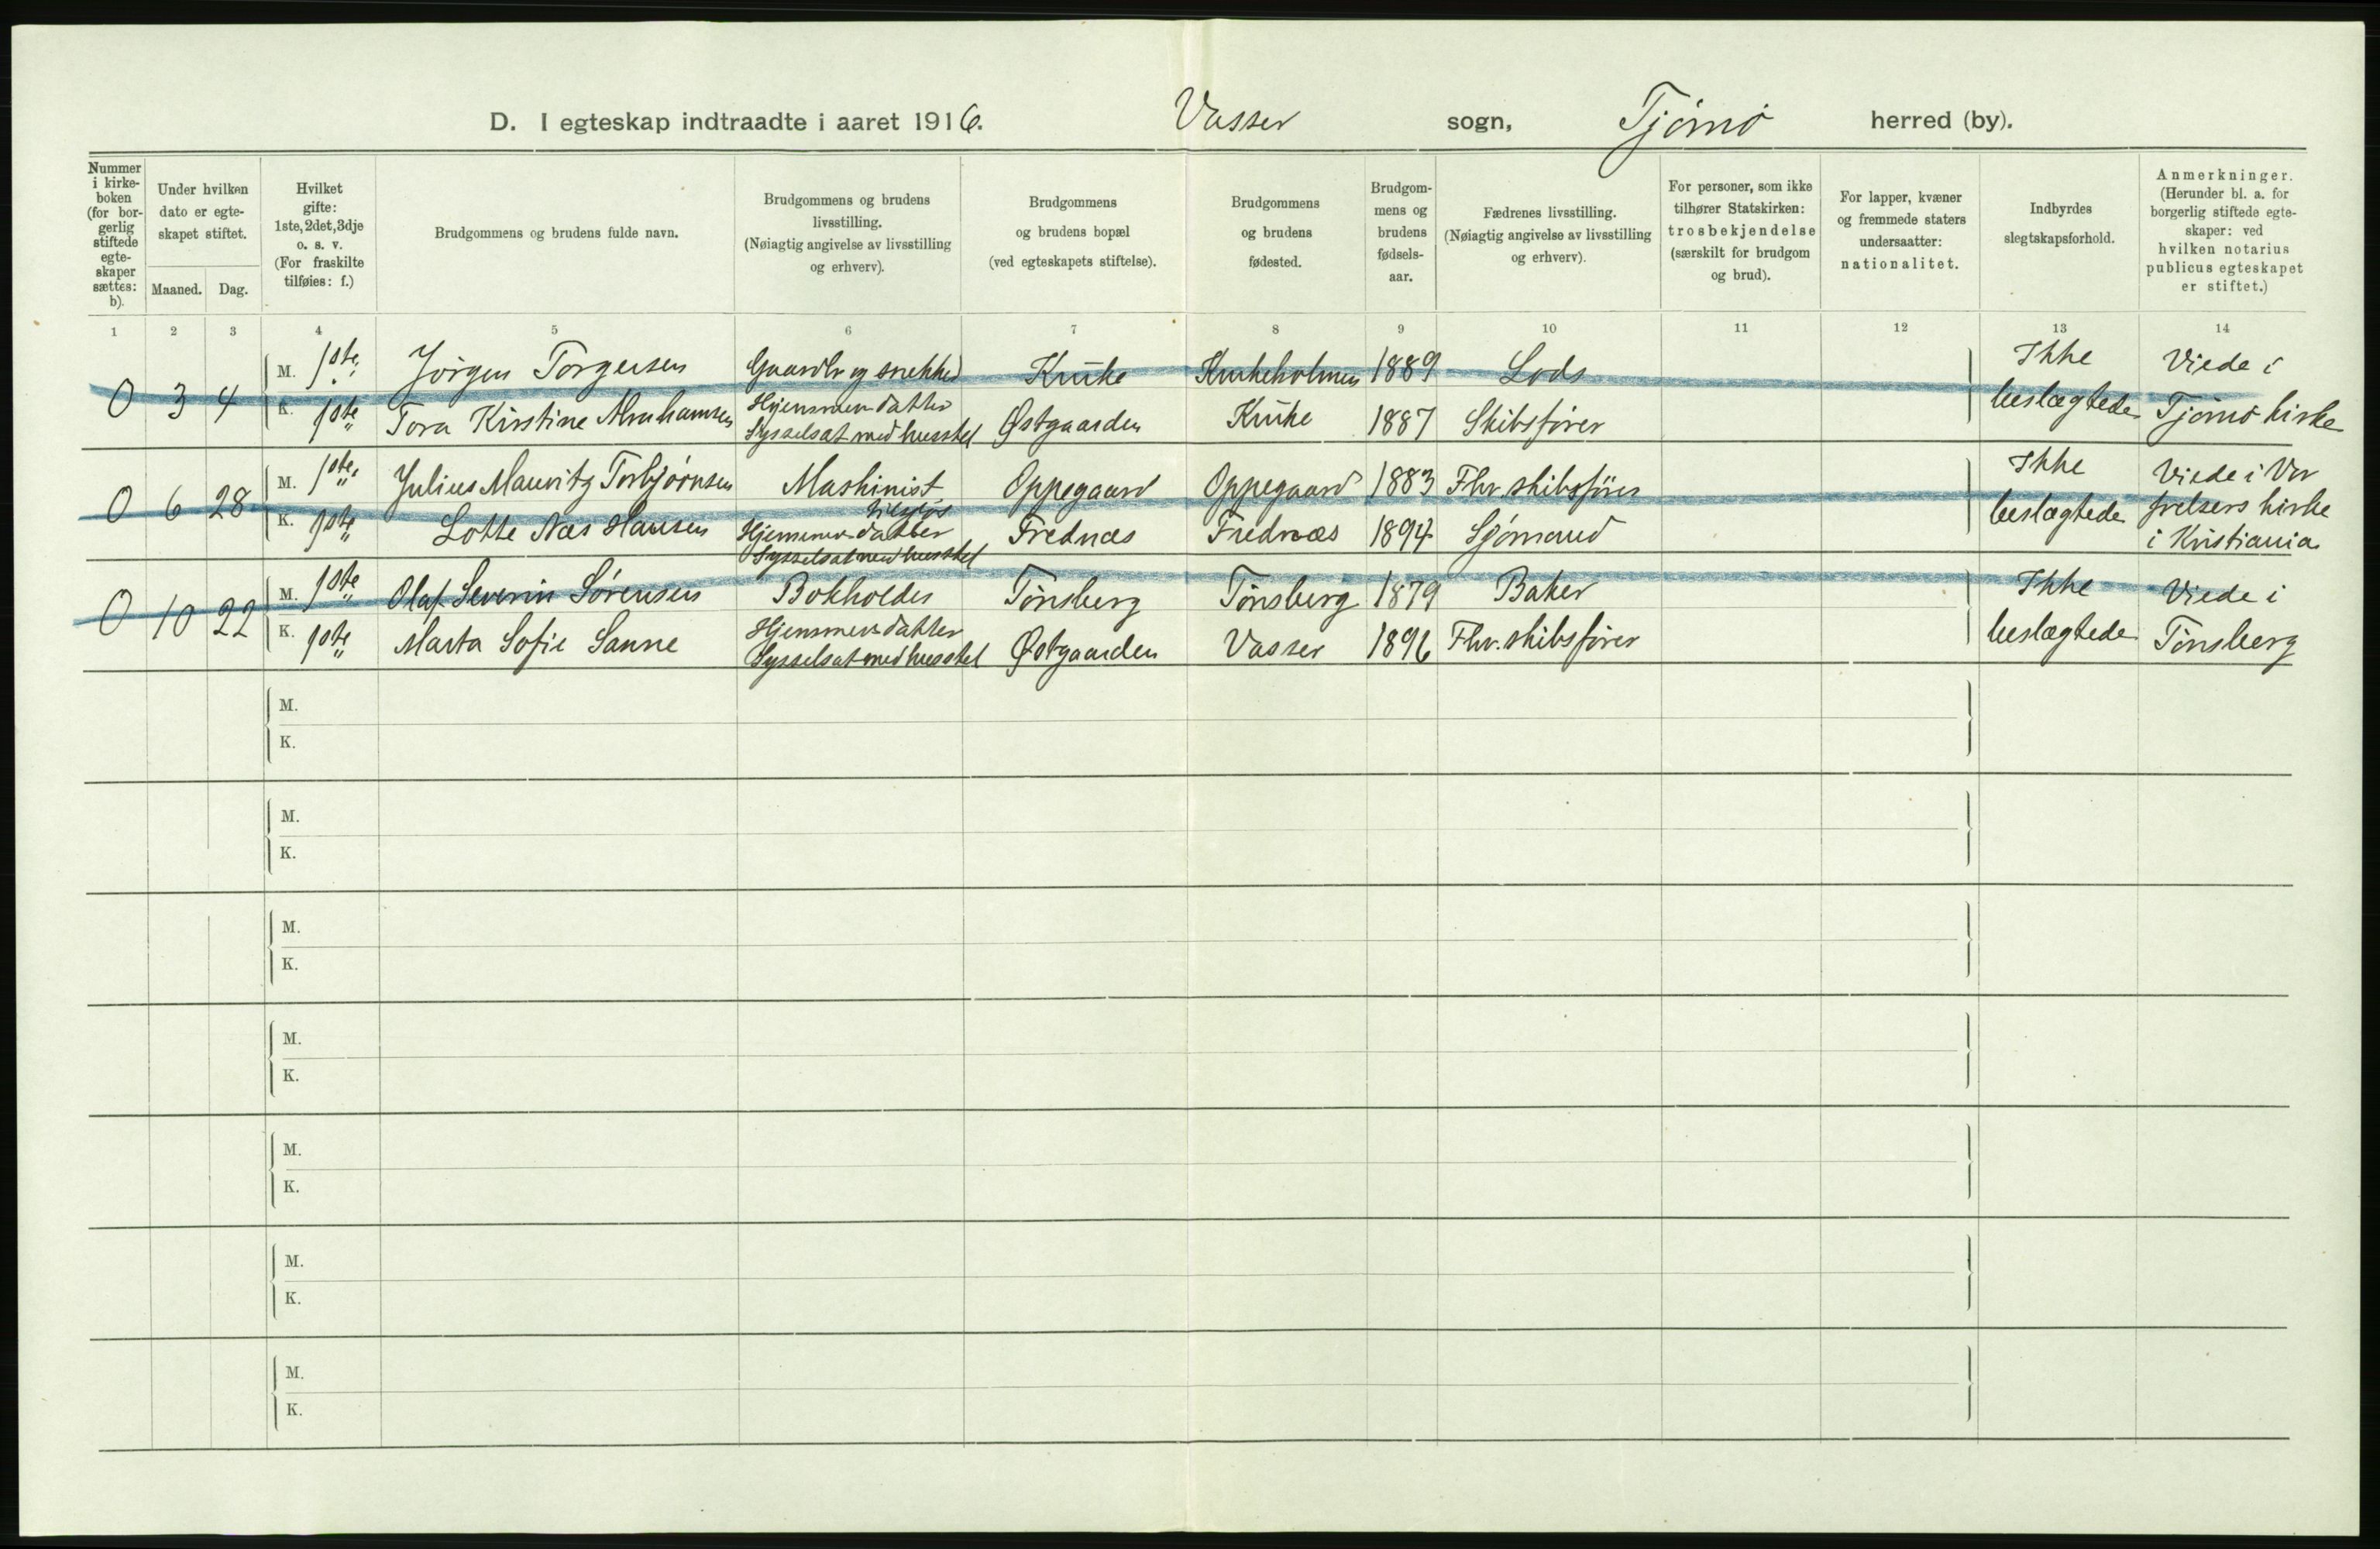 D. I egteskap indtraadte i aaret 1916. Vasser sogn, Tjömö herred (by).
Nummer i kirke-boken (for bor-gerlig stiftede egte-skaper sættes: b).
Under hvilken dato er egte-skapet stiftet.
Maaned. Dag.
Hvilket gifte: 1ste, 2det, 3dje o. s. v. (For fraskilte tilføies: f.)
Brudgommens og brudens fulde navn.
Brudgommens og brudens livsstilling. (Nøiagtig angivelse av livsstilling og erhverv).
Brudgommens og brudens bopæl (ved egteskapets stiftelse).
Brudgommens og brudens fødested.
Brudgom-mens og brudens fødsels-aar.
Fædrenes livsstilling. (Nøiagtig angivelse av livsstilling og erhverv).
For personer, som ikke tilhører Statskirken: trosbekjendelse (særskilt for brudgom og brud).
For lapper, kvæner og fremmede staters undersaatter: nationalitet.
Indbyrdes slegtskapsforhold.
Anmerkninger. (Herunder bl. a. for borgerlig stiftede egte-skaper: ved hvilken notarius publicus egteskapet er stiftet.)
1 2 3 4 5 6 7 8 9 10 11 12 13 14
0 3 4
M. 1ste Jörgen Torgersen Gaardbr og snekker Kruke Krukeholmen 1889 Lods Ikke Viede i
K. 1ste Tora Kirstine Abrahamsen Hjemmev. datter Sysselsat med husstel Østgaarden Kruke 1887 Skibsfører beslægtede Tjømö kirke
0 6 28
M. 1ste Julius Mauritz Torbjörnsen Maskinist Oppegaard Oppegaard 1883 Fhv. skibsfører Ikke Viede i Vor
K. 1ste Lotte Næs Hansen Hjemmev. datter Sysselsat med husstel Frednæs Frednæs 1894 Sjømand beslægtede frelsers kirke
i Kristiania
0 10 22
M. 1ste Olaf Severin Sörensen Bokholder Tönsberg Tönsberg 1879 Baker Ikke Viede i
K. 1ste Marta Sofie Sanne Hjemmev. datter Sysselsat med husstel Østgaarden Vasser 1896 Fhv. skibsfører beslægtede Tönsberg
M.
K.
M.
K.
M.
K.
M.
K.
M.
K.
M.
K.
M.
K.